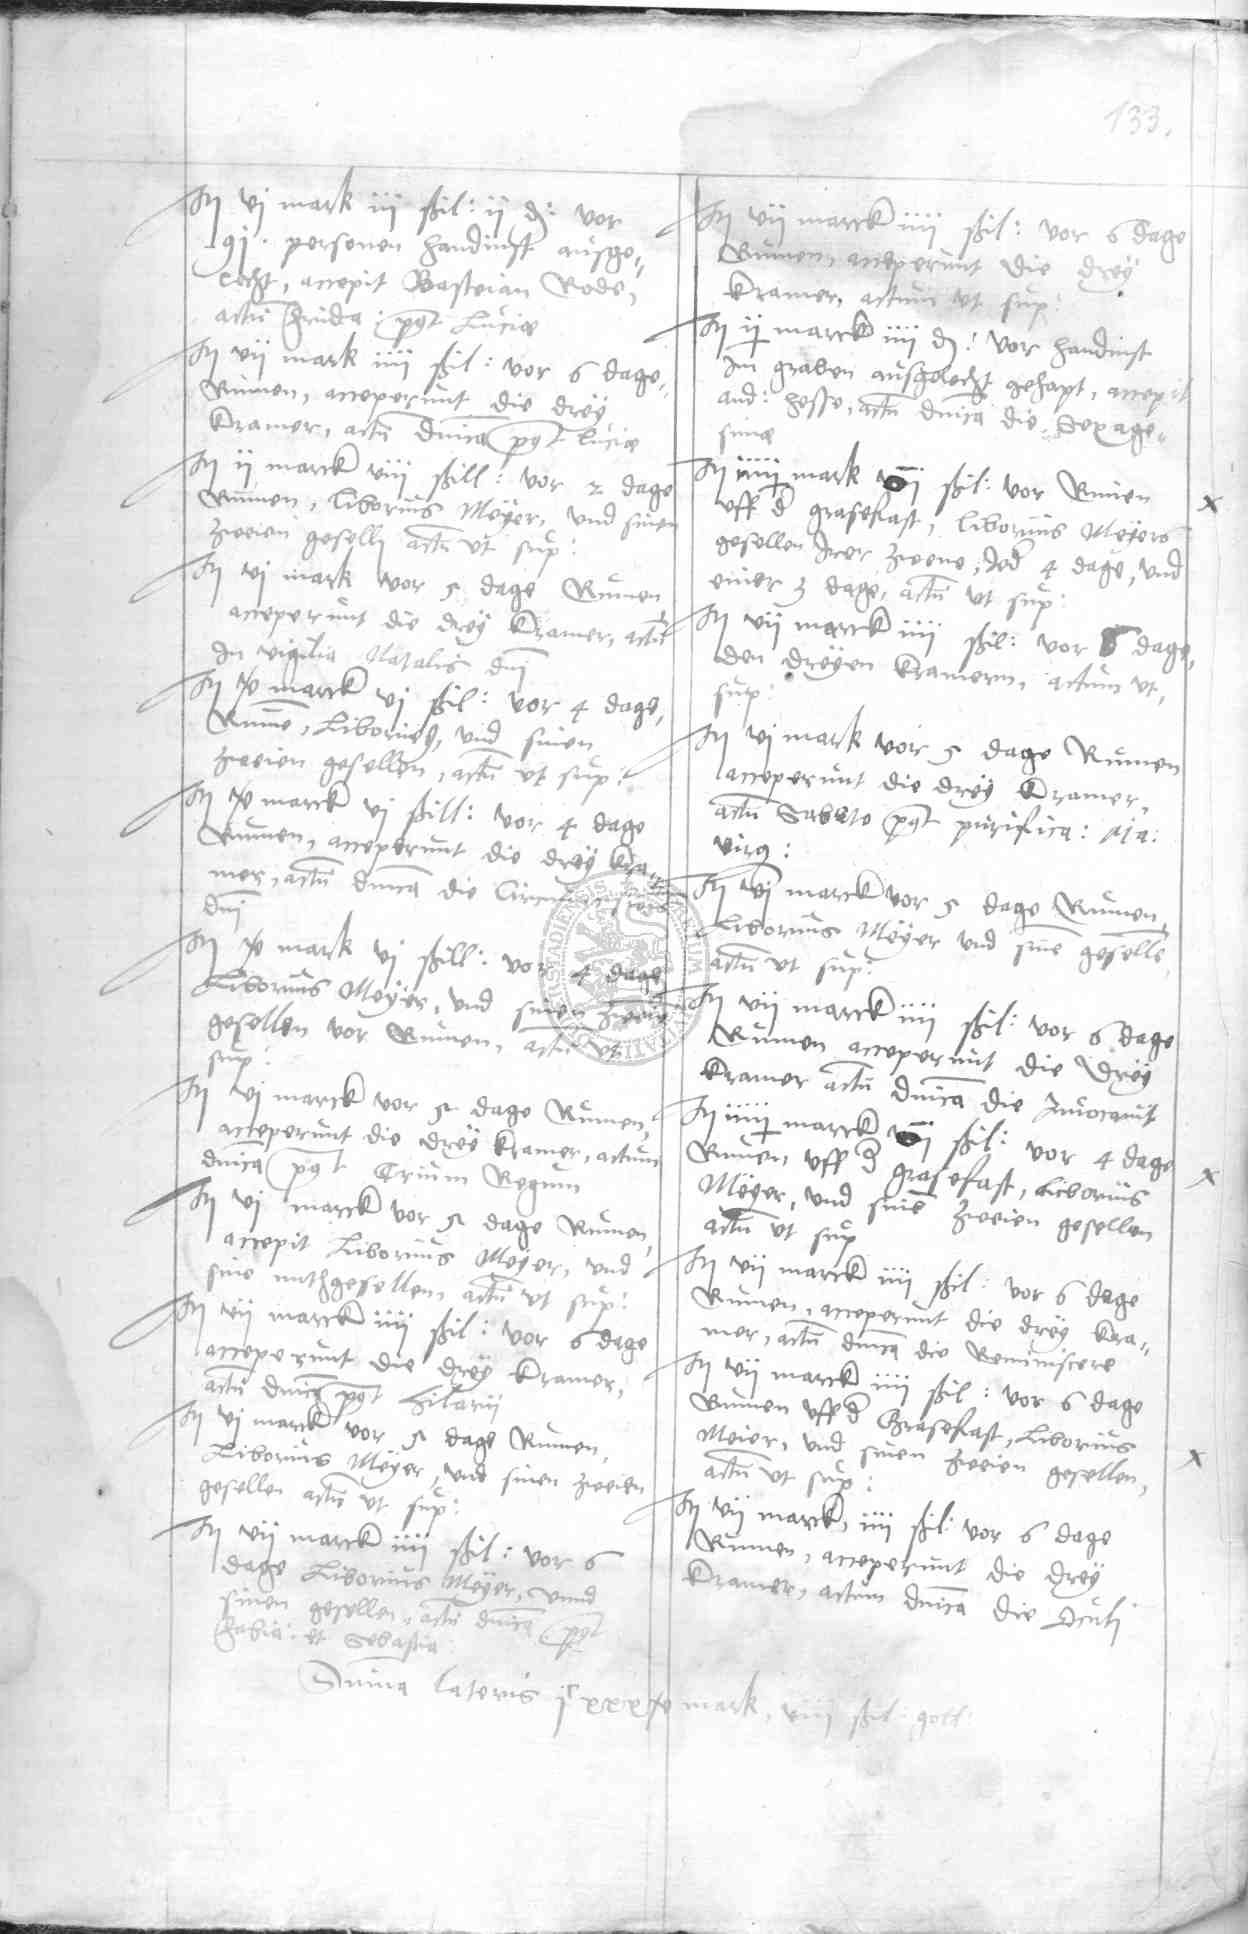 133.
It vj mark iij ßil: ij d: vor
personen handinst ausge„
lecht, accepit Bastian Rode,
actũ post Luciæ
It vij mark iiij ßil: vor 6 dage„
Rumen, acceperunt die drey
Kramer, actũ dnica post Luciæ
It ij marck viij ßill: vor 2 dage
Rumen, Liborius Meyer, und sinen
zweien gesell actũ ut sup:
It vj mark vor 5 dage Rumen
acceperunt die drey Kramer, actũ
In vigilia Natalis dni
It marck vj ßil: vor 4 dage,
Rume, Liborius, und sinen
zweien gesellen, actũ ut sup:
It marck vj ßill: vor 4 dage
Rumen, acceperunt die drey Kra„
mer, actũ dnica die Circumcisionis
dni
It mark vj ßill: vor 4 dage
Liborius Meyer, und sinen zweien
gesellen vor Rumen, actũ ut
sup:
It vj marck vor 5 dage Rumen,
acceperunt die drey Kramer, actum
dnica post Trium Regum
It vj marck vor 5 dage Rumen,
accepit Liborius Meyer, und
sine mithgesellen, actũ ut sup:
It vij marck iiij ßil: vor 6 dage
acceperunt die drey Kramer,
actũ dnica post Hilarij
It vj marck vor 5 dage Rumen,
Liborius Meyer, und sinen zweien
gesellen actũ ut sup:
It vij marck iiij ßil: vor 6
dage Liborius Meyer, unnd
sinen gesellen, actũ dnica post
Fabia: et Sebastia:
It vij marck iiij ßil: vor 6 dage
Rumen, acceperunt die drey
Kramer, actum ut sup:
It ij marck iiij d: vor handinst
Im graben ausgelecht gehapt, accepit
and: Hesse, actũ dnica die Sexage„
simæ
It iiij mark ßil: vor Rumen
uff d grasefast, Liborius Meyers
gesellen Irer zweene, Jed 4 dage, und
einer 3 dage, actũ ut sup:
x
It vij marck iiij ßil: vor 6 dage,
den dreyen Kramern, actum ut,
sup:
It vj mark vor 5 dage Rumen
acceperunt die drey Kramer,
actũ Sabato post purifica: Ma:
virg:
It vj marck vor 5 dage Rumen,
Liborius Meyer und sine geselle,
actũ ut sup:
It vij marck iiij ßil: vor 6 dage
Rumen acceperunt die drey
Kramer actũ dnica die Invocavit
It iiij marck ßil: vor 4 dage
Rumen uff d grasefast, Liborius
Meyer, und sine zweien gesellen
actũ ut sup
x
It vij marck iiij ßil: vor 6 dage
Rumen, acceperunt die drey Kra„
mer, actũ dnica die Reminiscere
It vij marck iiij ßil: vor 6 dage
Rumen uff d Grasefast, Liborius
Meier, und sinen zweien gesellen,
actũ ut sup:
x
It vij marck, iiij ßil: vor 6 dage
Rumen, acceperunt die drey
Kramer, actum dnica die Oculi
Summa lateris mark, viij ßil: gott: